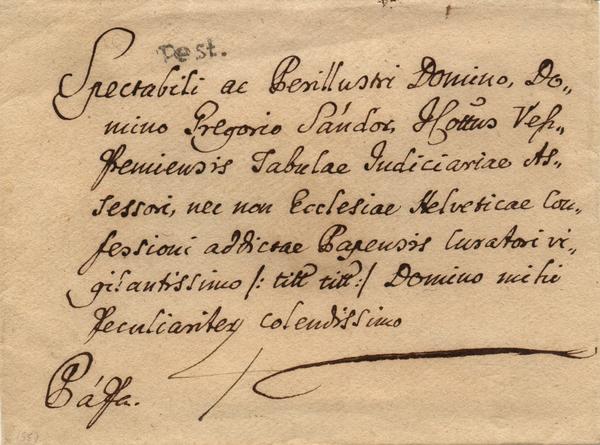 Pest.
Spectabili ac Perillustri Domino, Do-
mino Gregorio Sándor, Ittus Vesz-
premiensis Tabulae Iudiciariae As-
sessori, nec non Ecclesiae Helveticae Con-
fessioni addictae Papensis Curatori vi-
gilantissimo /: titt titt :/ Domino mihi
peculiariter colendissimo
Pápa.